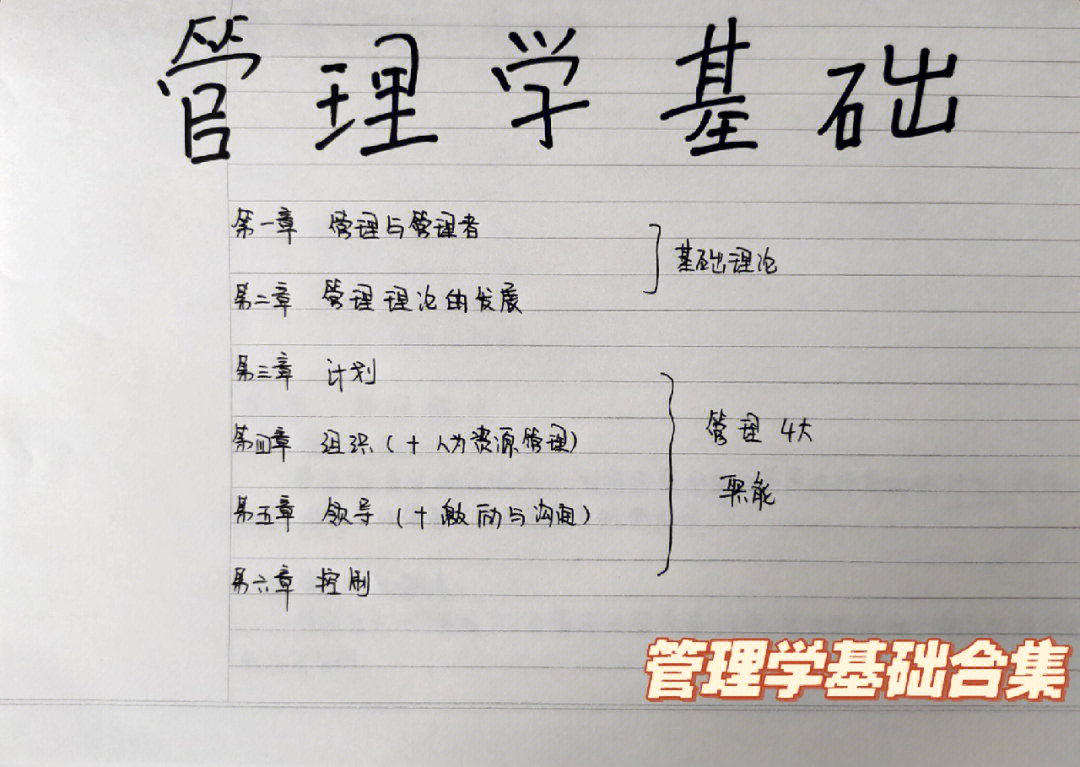 管理学基础
第一章 管理与管理者
基础理论
第二章 管理理论的发展
第三章 计划
第四章 组织(+人力资源管理)
管理4大
职能
第五章 领导(+激励与沟通)
第六章 控制
管理学基础合集